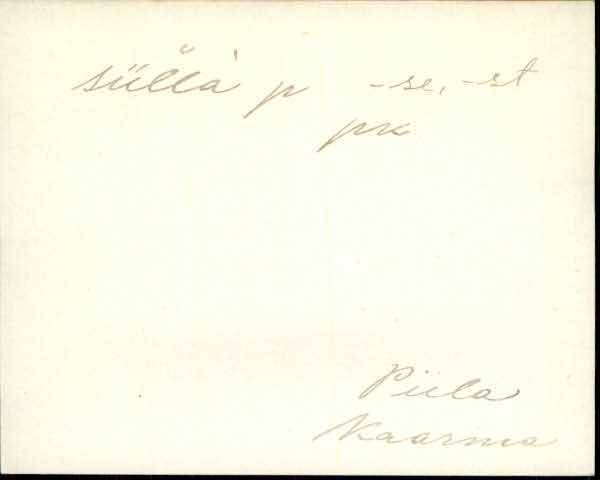 sülla p -se, -st
pk
Piila
Kaarma